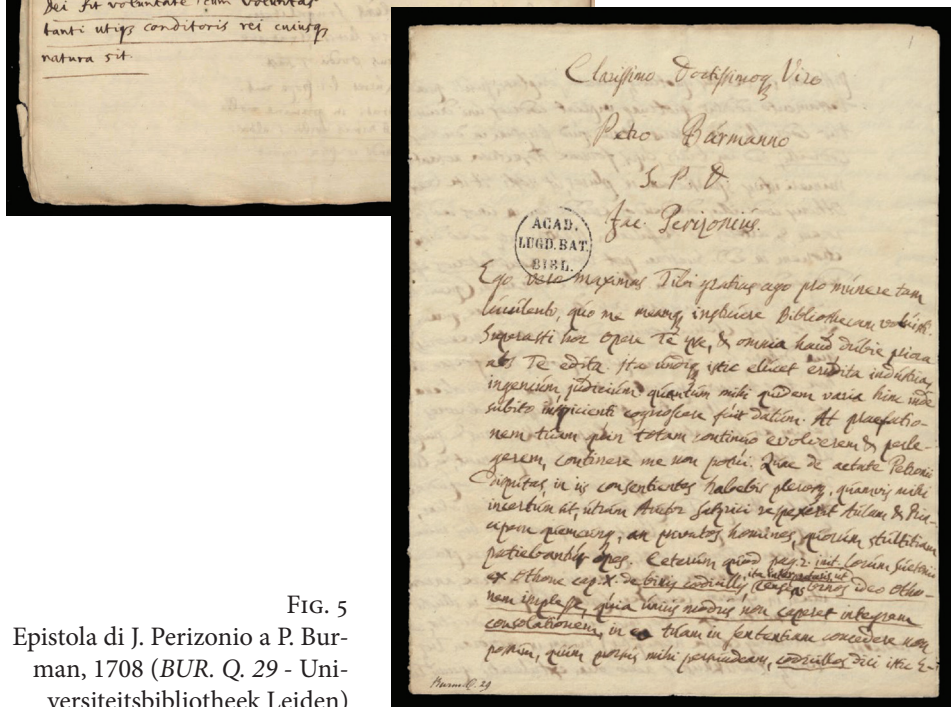 Dei fit voluntate cum voluntas
tanti utiq; conditoris rei cuiusq;
natura sit.
1
Clarissimo Doctissimoq; Viro
Petro Burmanno
S. P. D.
Jac. Perizonius.
ACAD.
LUGD.BAT.
BIBL.
Ego vero maximas Tibi gratias ago pro munere tam
luculento, quo me meamq; instruere Bibliothecam voluisti.
Superasti hoc opere Te ipse, & omnia haud dubie priora
abs Te edita. Ita undiq; istic elucet erudita industria,
ingenium judicium quantum mihi quidem varia hinc inde
subito inspicienti cognoscere fuit datum. At praefatio-
nem tuam quin totam continuo evolverem & perle-
gerem, continere me non potui. Quae de aetate Petronii
disputas in iis consentientes habebis plerosq, quamvis mihi
incertum sit, utrum Auctor Satyrici respexerit Aulam & Prin-
cipem quemcunq, an privatos homines, quorum stultitiam
patiebantur opes. Ceterum quod pag. 2. init. locum Suetonii
ex Othone cap. X. de binis codicillis ita interpretaris ut
censeas ternos ideo Otho-
nem implesse, quia unius modus non caperet integram
consolationem, in eo tuam in sententiam concedere non
possum, quum pornis mihi persuadeam, codicillos dici istic E-
Burm. Q. 29
FIG. 5
Epistola di J. Perizonio a P. Bur-
man, 1708 (BUR. Q. 29 - Uni-
versiteitsbibliotheek Leiden)